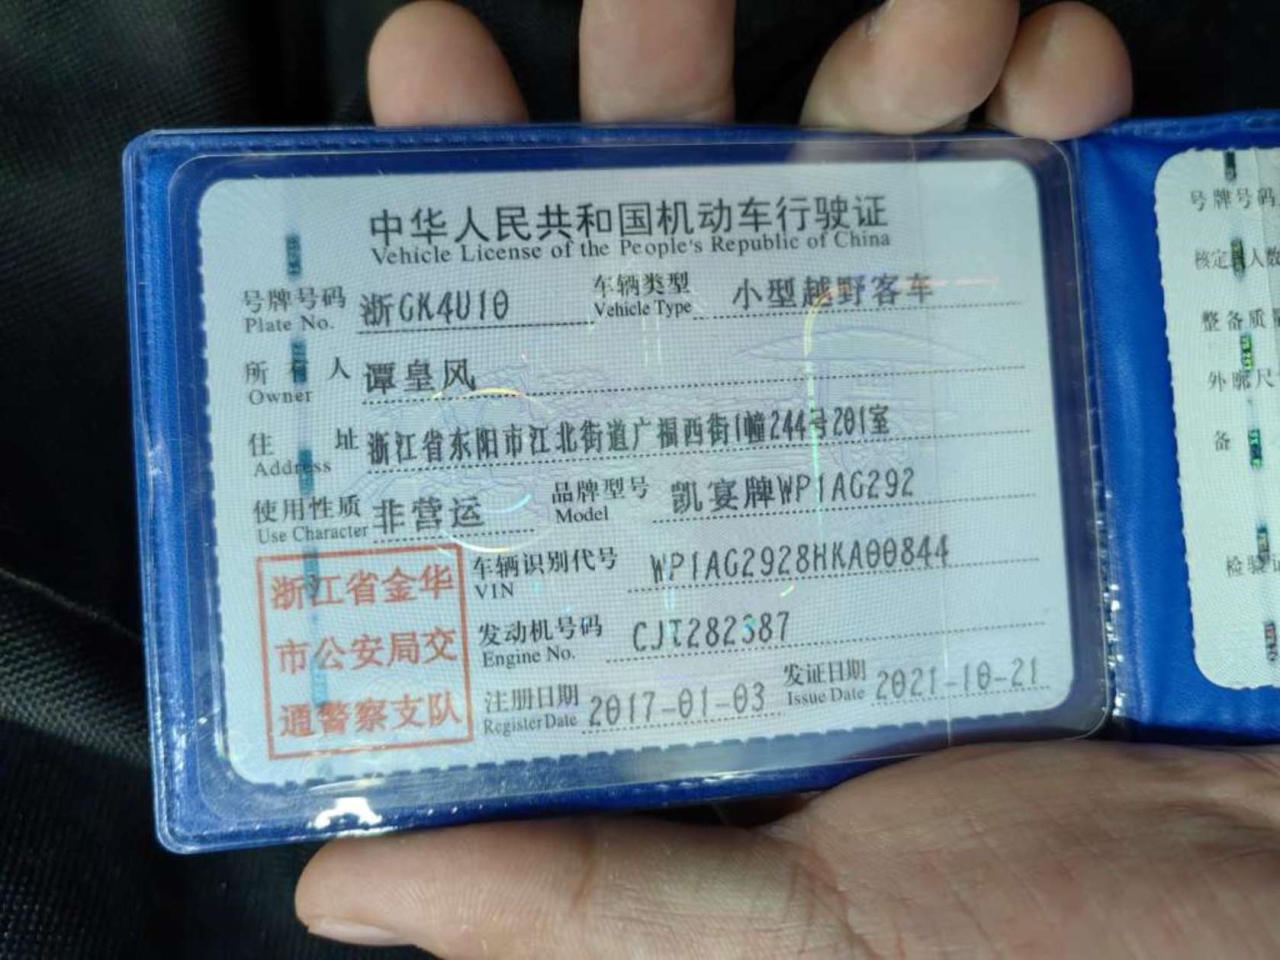 中华人民共和国机动车行驶证
Vehicle License of the People's Republic of China
号牌号码 浙GK4U10 车辆类型 小型越野客车
Plate No. Vehicle Type
所有人 谭皇风
Owner
住址 浙江省东阳市江北街道广福西街1幢244号201室
Address
使用性质 非营运 品牌型号 凯宴牌WP1AG292
Use Character Model
浙江省金华
市公安局交
通警察支队
车辆识别代号 WP1AG2928HKA00844
VIN
发动机号码 CJT282387
Engine No.
注册日期 2017-01-03 发证日期 2021-10-21
Register Date Issue Date
号牌号码
核定 人数
整备质
外廓尺
备
检验